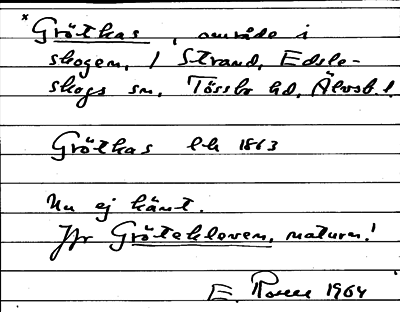 * Grötkas, område i
skogen, / Strand, Edsle-
skogs sn, Tössbo hd, Älvsb. l.
Grötkas lh 1863
Nu ej känt.
Jfr Grötekloven, naturn!
E. Rosell 1964